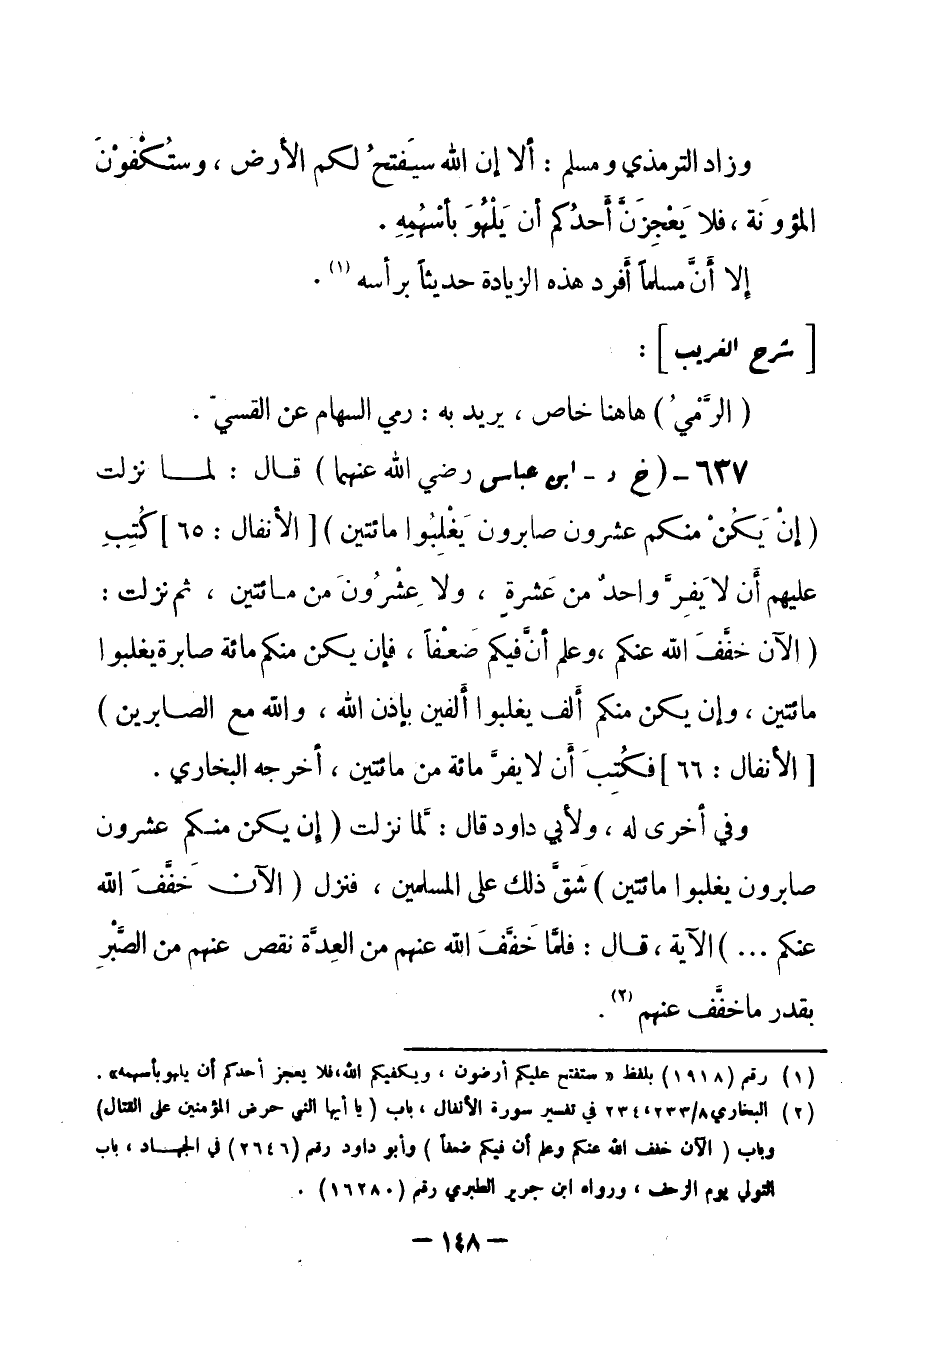 وزاد الترمذي ومسلم : ألا إن الله سيَفتحُ لكم الأرض ، وستُكْفَوْنَ
المؤونَة ، فلا يَعْجِزَنَّ أَحدُكم أن يَلْهُوَ بأسْهُمِهِ .
إلا أَنَّ مسلماً أَفرد هذه الزيادة حديثاً برأسه (١) .
[ شرح الغريب ] :
( الرَّمْيُ ) هاهنا خاص ، يريد به : رمي السهام عن القسيّ .
٦٣٧ - (خ د - ابن عباس رضي الله عنهما ) قال : لما نزلت
( إنْ يَكُنْ منكم عشرون صابرون يَغْلِبُوا مائتين ) [ الأنفال : ٦٥ ] كُتِبِ
عليهم أَن لا يَفِرَّ واحدٌ من عَشرةٍ ، ولا عِشْرُونَ من مائتين ، ثم نزلت :
( الآن خفَّفَ الله عنكم ، وعلم أنَّ فيكم ضَعْفاً ، فإن يكن منكم مائة صابرة يغلبوا
مائتين ، وإن يكن منكم أَلف يغلبوا أَلفين بإذن الله ، والله مع الصابرين )
[ الأنفال : ٦٦ ] فكُتِبَ أَن لا يفرَّ مائة من مائتين ، أخرجه البخاري .
وفي أخرى له ، ولأبي داود قال : لَمَّا نزلت ( إن يكن منكم عشرون
صابرون يغلبوا مائتين ) شَقَّ ذلك على المسلمين ، فنزل ( الآن خَفَّفَ الله
عنكم ... ) الآية ، قال : فلمَّا خَفَّفَ الله عنهم من العِدَّة نقص عنهم من الصَّبْرِ
بقدر ما خفَّف عنهم (٢) .
(١) رقم (١٩١٨) بلفظ « ستفتح عليكم أرضون ، ويكفيكم الله، فلا يعجز أحدكم أن يلهو بأسهمه» .
(٢) البخاري ٢٣٣/٨، ٢٣٤ في تفسير سورة الأنفال ، باب ( يا أيها النبي حرض المؤمنين على القتال)
وباب ( الآن خفف الله عنكم وعلم أن فيكم ضعفاً ) وأبو داود رقم (٢٦٤٦) في الجهاد ، باب
التولي يوم الزحف ، ورواه ابن جرير الطبري رقم (١٦٢٨٠) .
- ١٤٨ -